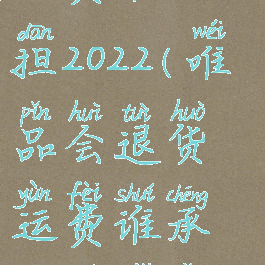 dān wéi
担2022(唯
pǐn huì tuì huò
品会退货
yùn fèi shuí chéng
运费谁承